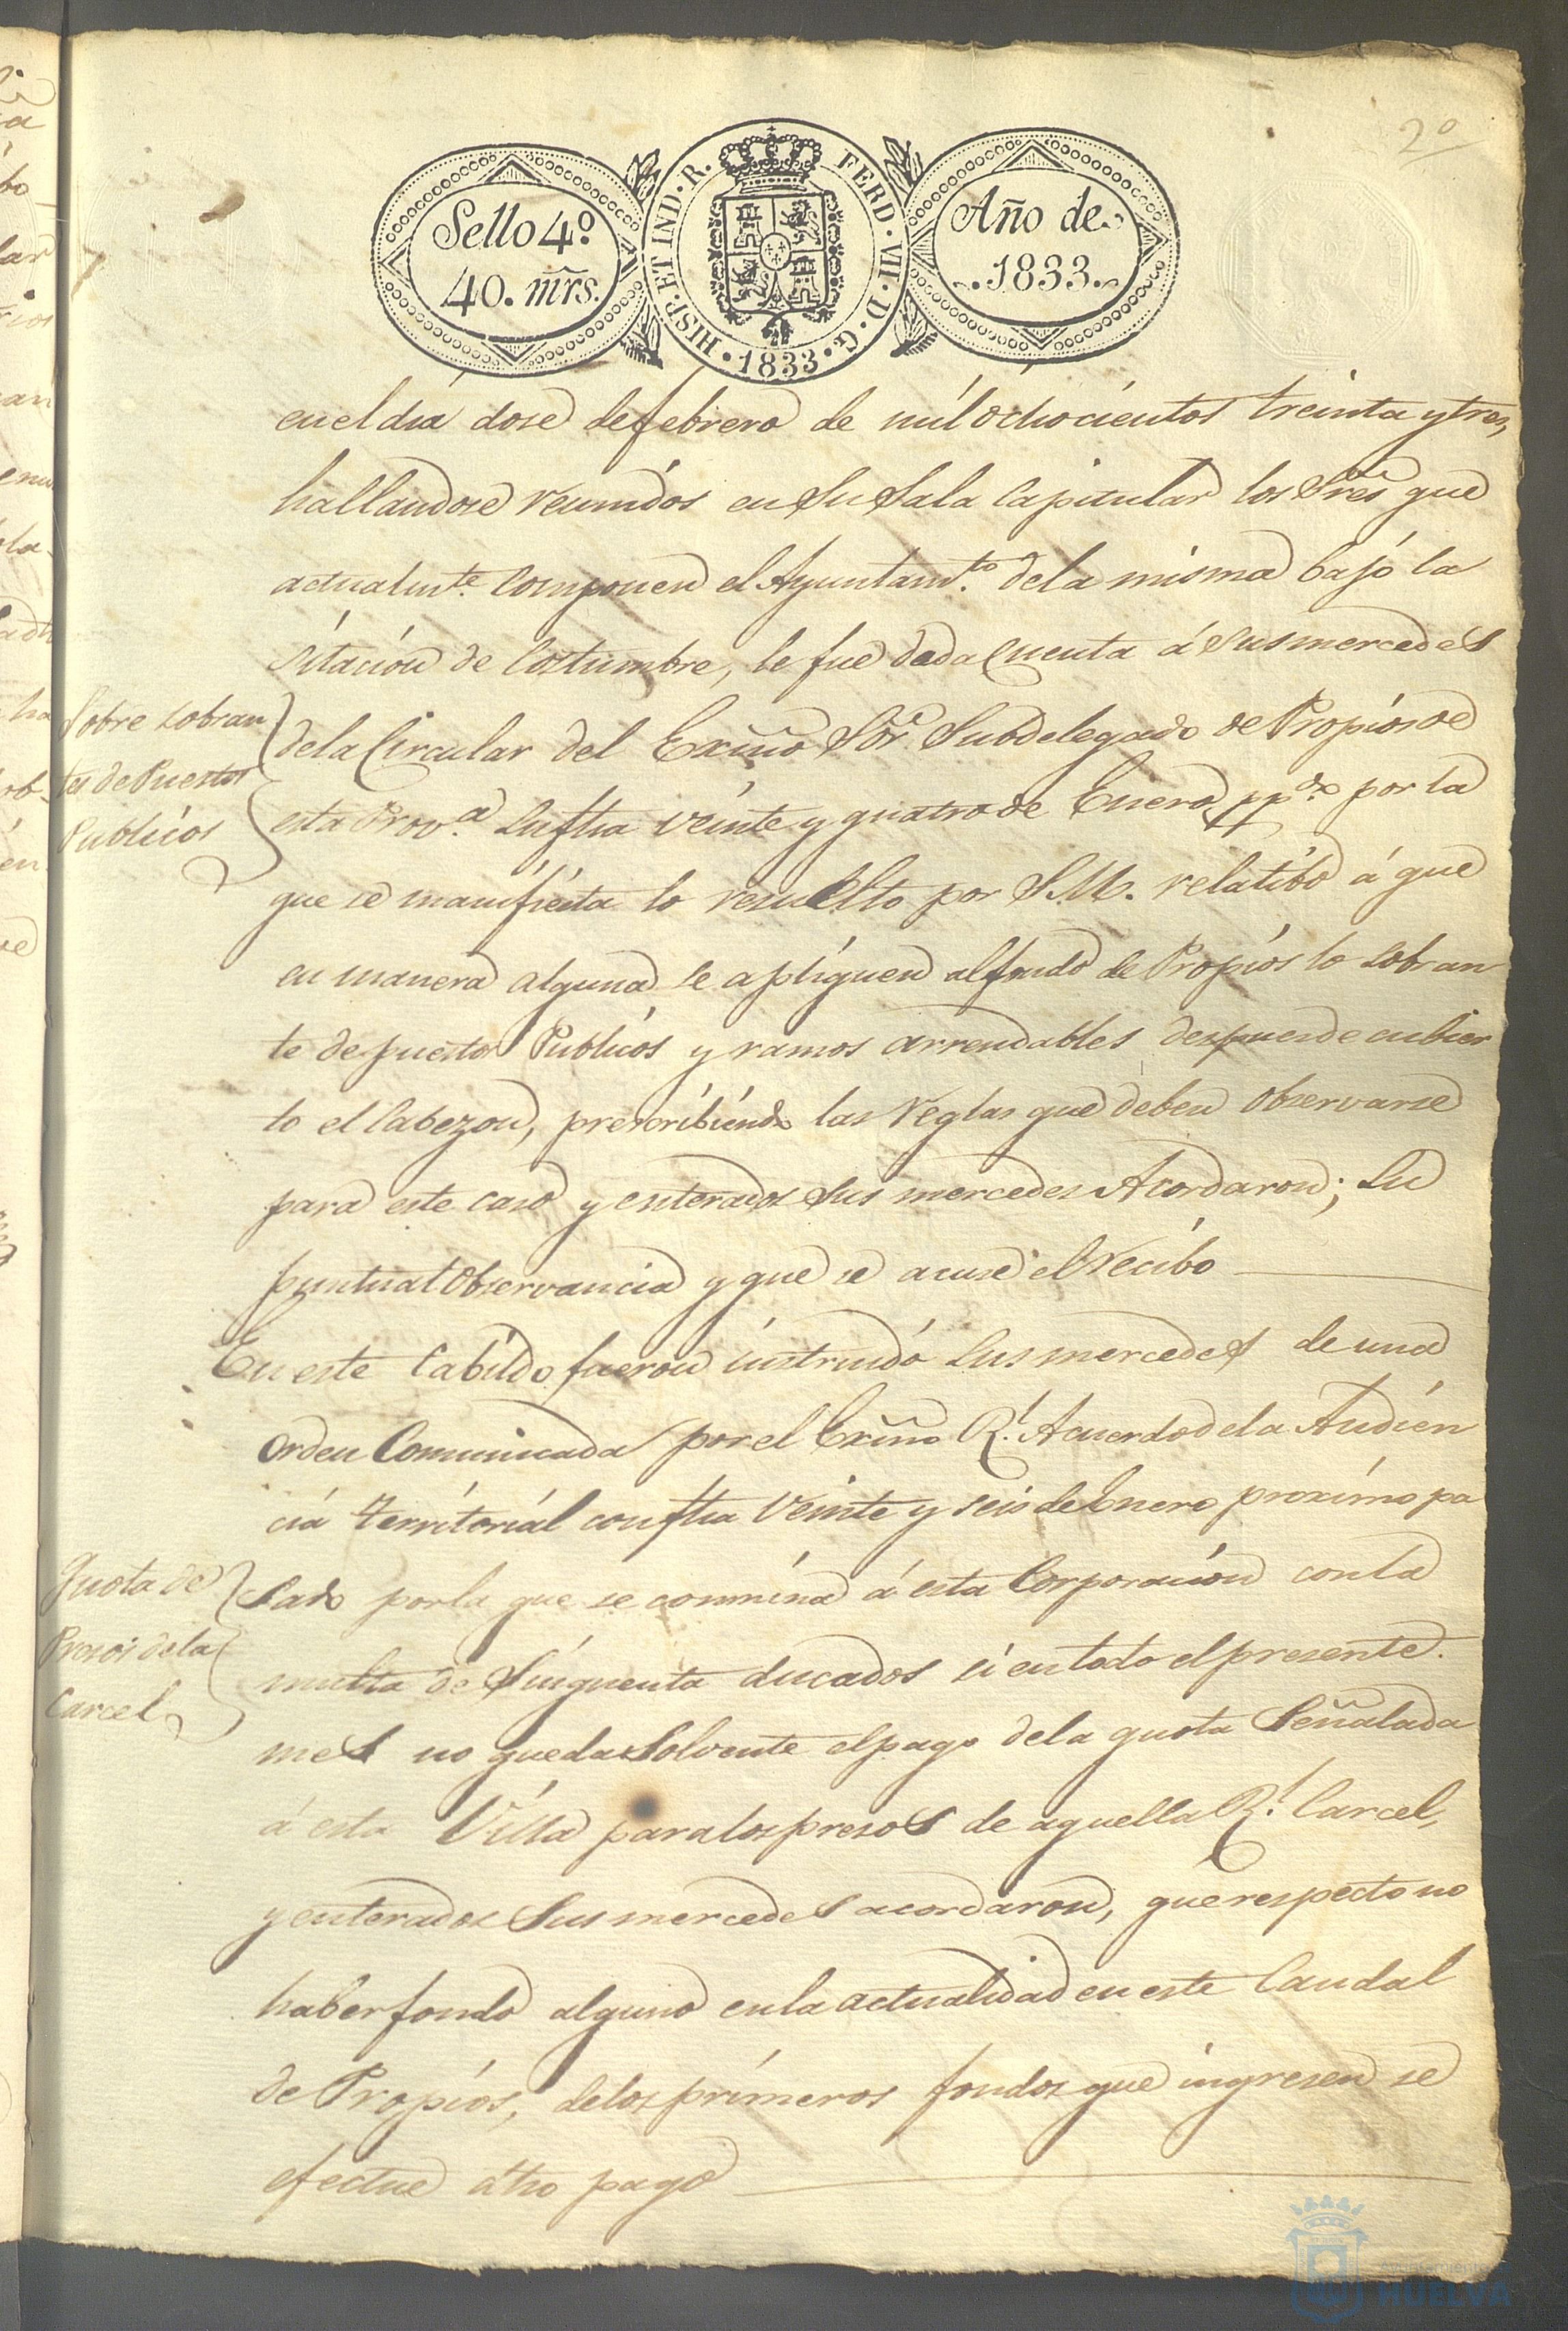 2º
Sello 4º.
40. mr̃s.
HISP. ET IND. R. FERD. VII. D. G.
1833
Año de
1833.
en el dia dose de febrero de mil ochocientos treinta y tres,
hallandose reunidos en su Sala Capitular los Sres que
actualmte. componen el Ayuntamto. de la misma bajo la
sitacion de costumbre, le fue dada cuenta á sus mercedes
Sobre sobran
tes de Puestos
Publicos
de la Circular del Exmo Sor. Subdelegado de Propios de
esta Prova. su fha veinte y quatro de Enero ppdo. por la
que se manifiesta lo resuelto por S.M. relatibo á que
en manera alguna se apliquen al fondo de Propios lo sobran
te de puestos Publicos y ramos arrendables despues de cubier
to el Cabezon, prescribiendo las reglas que deben observarse
para este caso y enterados sus mercedes Acordaron; su
puntual observancia y que se acuse el recibo
En este Cabildo fueron instruido sus mercedes de una
orden Comunicada por el Exmo Rl. Acuerdo de la Audien
cia territorial con fha veinte y seis de Enero proximo pa
Quota de
Presos de la
Carcel
sado por la que se conmina á esta Corporacion con la
multa de sinquenta ducados si en todo el presente
mes no queda solvente el pago de la quota señalada
á esta Villa para los presos de aquella Rl. Carcel,
y enterados sus mercedes acordaron, que respecto no
haber fondo alguno en la actualidad en este Caudal
de Propios, de los primeros fondos que ingresen se
efectue dho pago
HUELVA